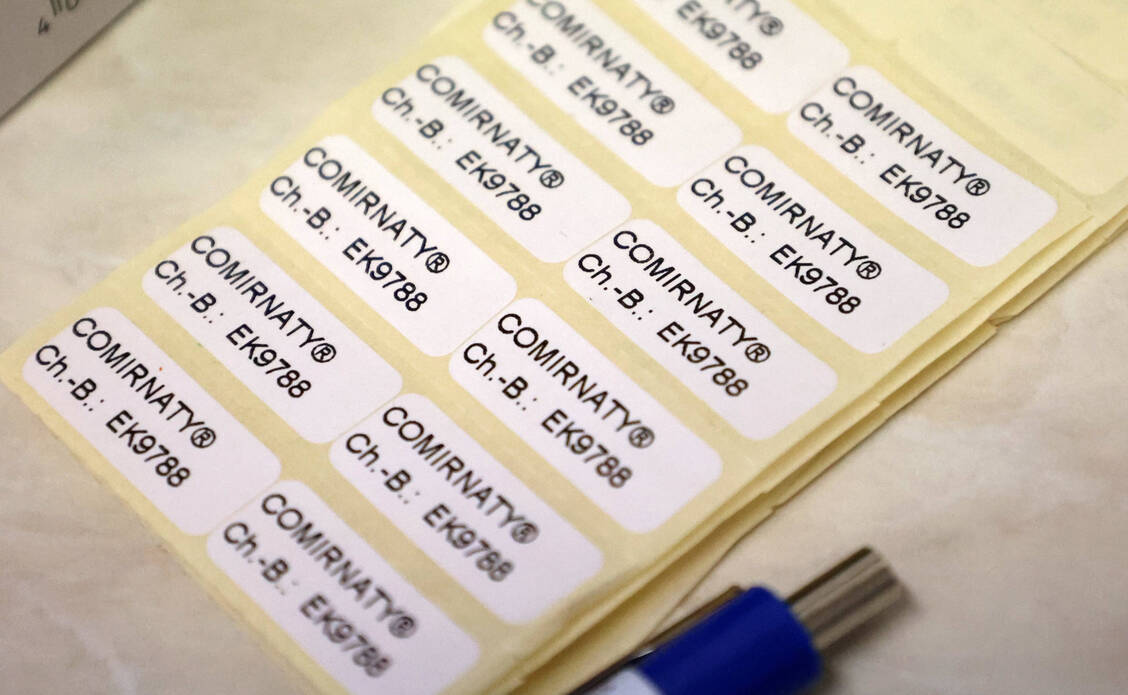 EK9788
COMIRNATY®
Ch.-B.: EK9788
COMIRNATY®
Ch.-B.: EK9788
COMIRNATY®
Ch.-B.: EK9788
COMIRNATY®
Ch.-B.: EK9788
COMIRNATY®
Ch.-B.: EK9788
COMIRNATY®
Ch.-B.: EK9788
COMIRNATY®
Ch.-B.: EK9788
COMIRNATY®
Ch.-B.: EK9788
COMIRNATY®
Ch.-B.: EK9788
COMIRNATY®
Ch.-B.: EK9788
COMIRNATY®
Ch.-B.: EK9788